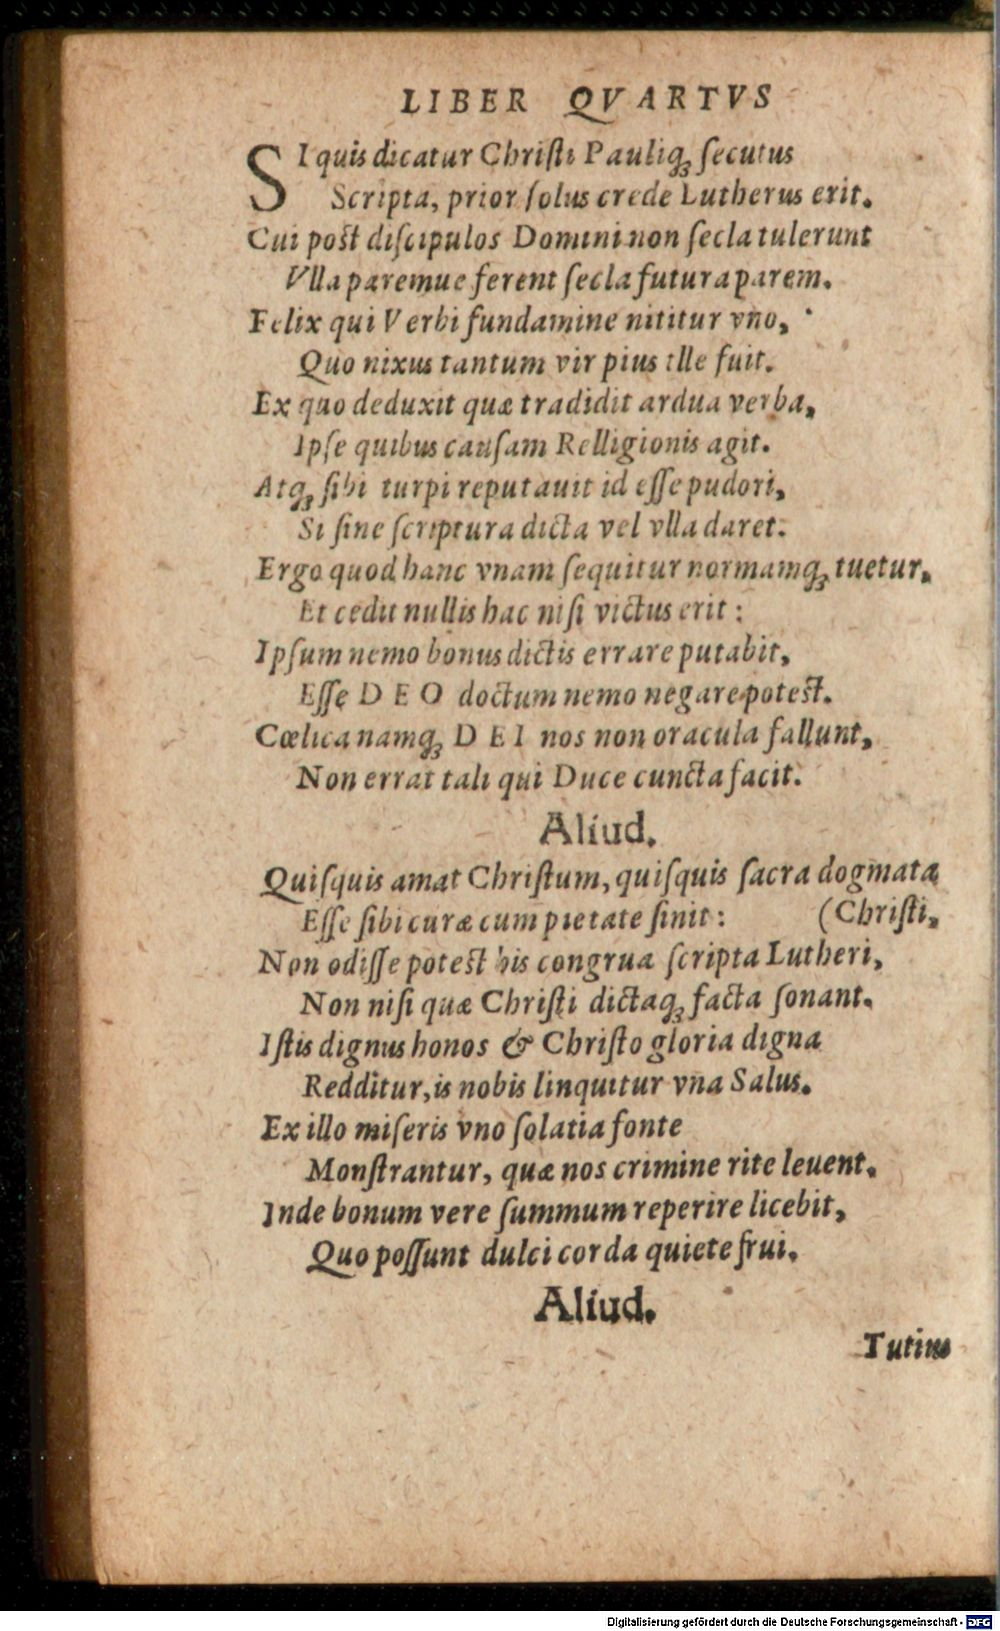 LIBER QVARTVS
SI quis dicatur Chriſti Pauliq́ꝫ ſecutus
Scripta, prior ſolus crede Lutherus erit.
Cui poſt diſcipulos Domini non ſecla tulerunt
Vlla paremue ferent ſecla futura parem.
Felix qui Verbi fundamine nititur vno,
Quo nixus tantum vir pius ille fuit.
Ex quo deduxit quæ tradidit ardua verba,
Ipſe quibus cauſam Relligionis agit.
Atqꝫ ſibi turpi reputauit id eſſe pudori,
Si ſine ſcriptura dicta vel vlla daret.
Ergo quod hanc vnam ſequitur normamqꝫ tuetur,
Et cedit nullis hac niſi victus erit:
Ipſum nemo bonus dictis errare putabit,
Eſſe DEO doctum nemo negare poteſt.
Cœlica namqꝫ DEI nos non oracula fallunt,
Non errat tali qui Duce cuncta facit.
Aliud.
Quiſquis amat Chriſtum, quiſquis ſacra dogmata
Eſſe ſibi curæ cum pietate ſinit: (Chriſti,
Non odiſſe poteſt his congrua ſcripta Lutheri,
Non niſi quæ Chriſti dictaqꝫ facta ſonant.
Iſtis dignus honos & Chriſto gloria digna
Redditur, is nobis linquitur vna Salus.
Ex illo miſeris vno ſolatia fonte
Monſtrantur, quæ nos crimine rite leuent.
Inde bonum vere ſummum reperire licebit,
Quo poſſunt dulci corda quiete frui.
Aliud.
Tutius
Digitalisierung gefördert durch die Deutsche Forschungsgemeinschaft - DFG